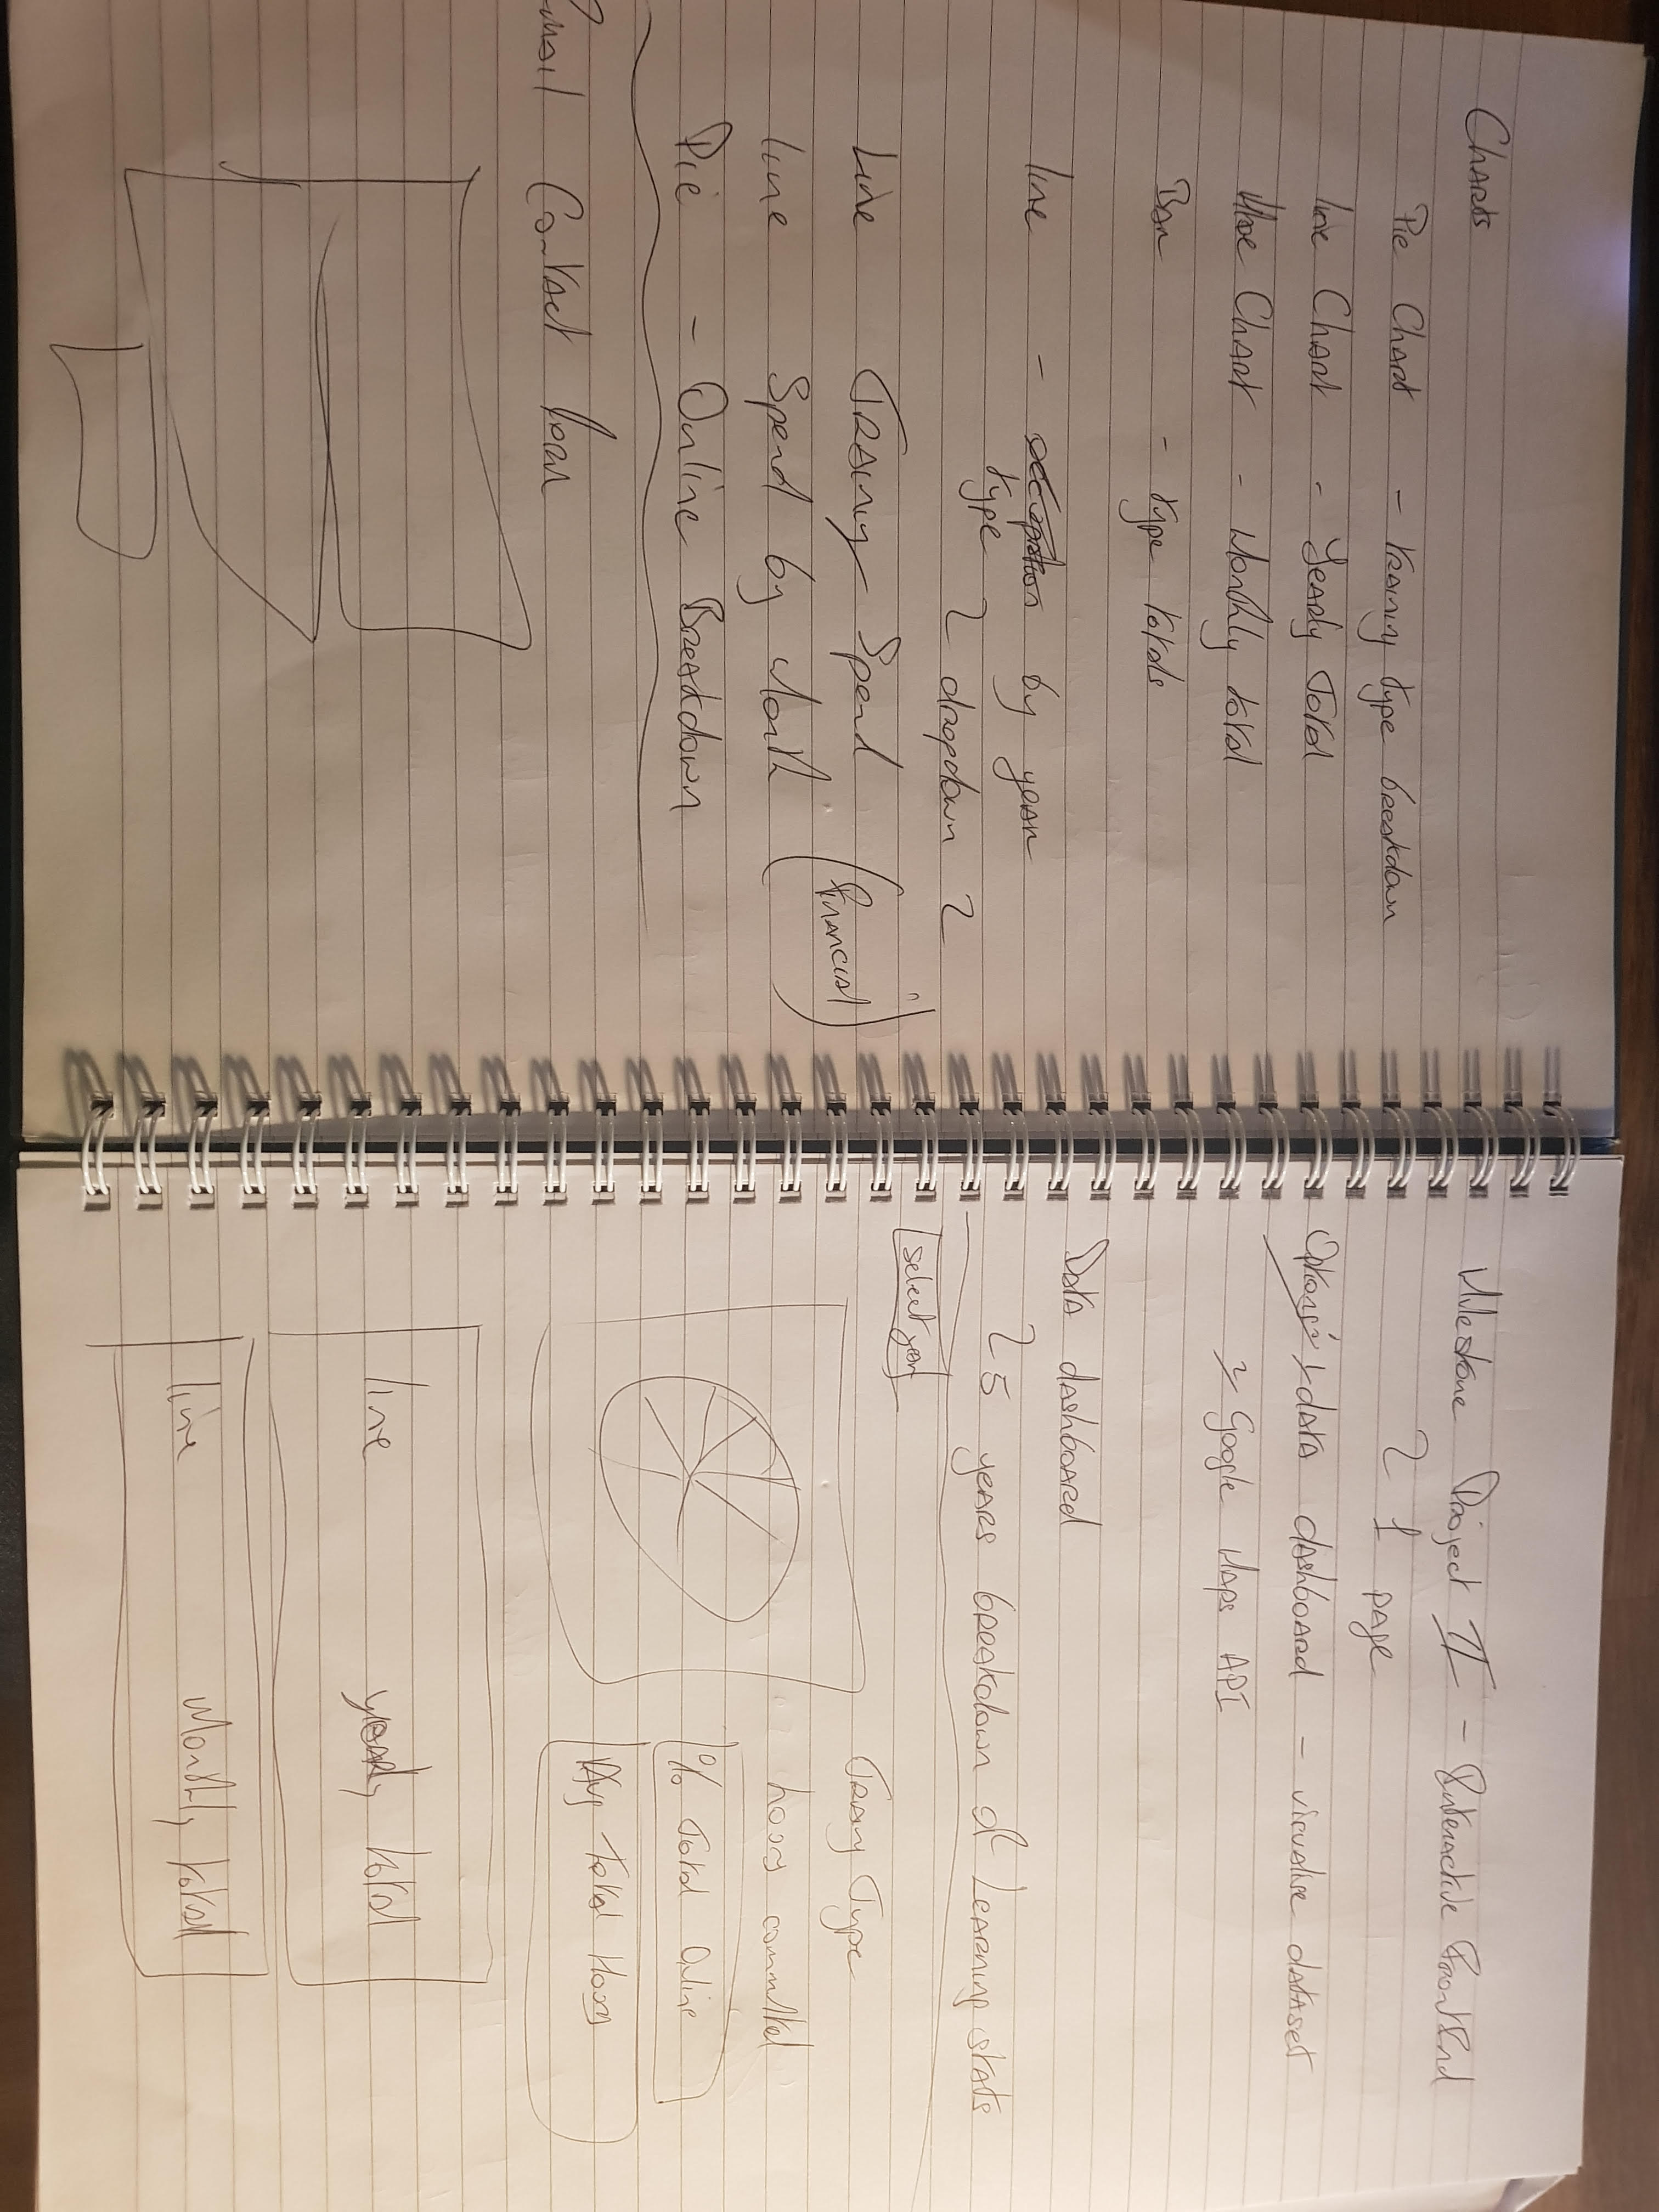 Charts
Pie Chart - training type breakdown
line Chart - Yearly Total
line Chart - Monthly total
Bar - type totals
line - by year
type
dropdown
Line Training Spend
(financial)
line Spend by Month
Pie - Online Breakdown
Email Contact form
Milestone Project II - Interactive FrontEnd
1 page
Options data dashboard - visualise dataset
Google Maps API
Data dashboard
5 years breakdown of Learning stats
select year
Training Type
hours committed
% Total Online
Avg Total Hours
line yearly total
line Monthly total